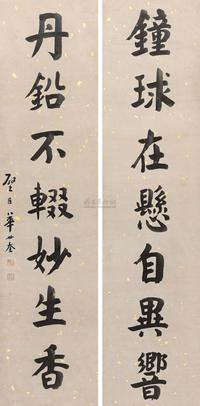 鐘球在懸自異響
丹鉛不輟妙生香
華世奎